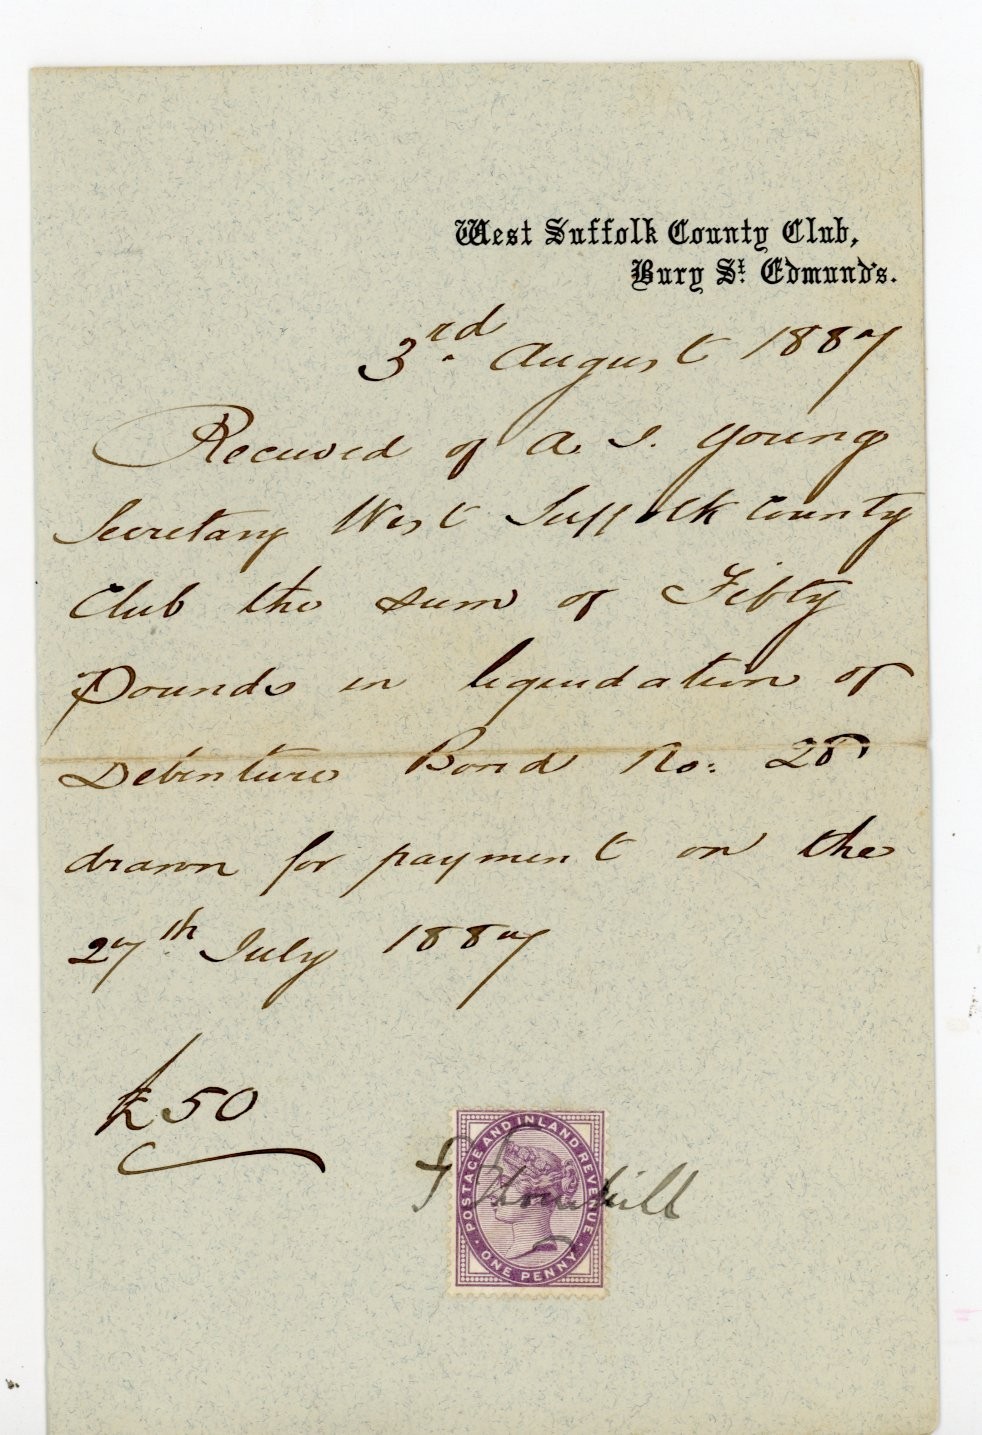 West Suffolk County Club,
Bury St. Edmund's.
3rd. August 1887
Received of A. J. Young
Secretary West Suffolk County
Club the sum of Fifty
Pounds in liquidation of
Debenture Bond No: 28
drawn for payment on the
27th. July 1887
£50
POSTAGE AND INLAND REVENUE
ONE PENNY